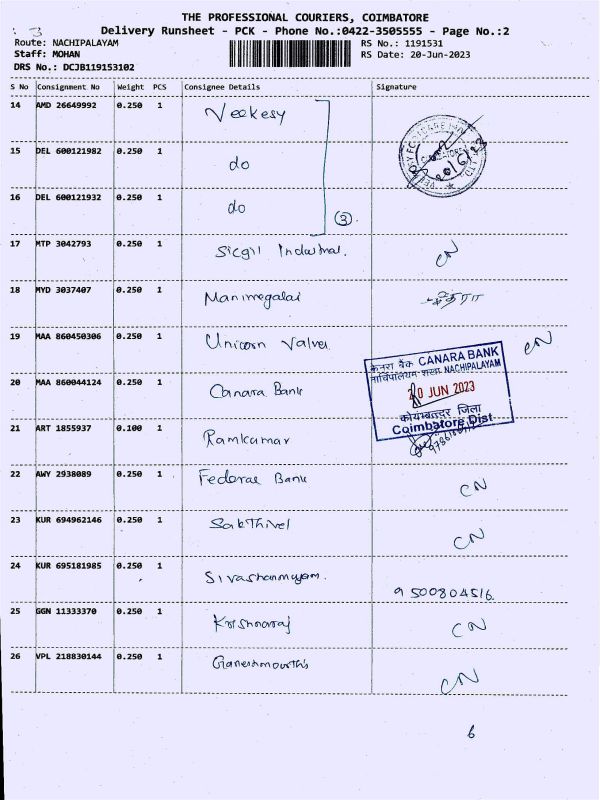 THE PROFESSIONAL COURIERS, COIMBATORE
: 3 Delivery Runsheet - PCK - Phone No.:0422-3505555 - Page No.:2
Route: NACHIPALAYAM RS No.: 1191531
Staff: MOHAN RS Date: 20-Jun-2023
DRS No.: DCJB119153102
S No Consignment No Weight PCS Consignee Details Signature
14 AMD 26649992 0.250 1 Veekesy
15 DEL 600121982 0.250 1 do
16 DEL 600121932 0.250 1 do
3
20/6/23
17 MTP 3042793 0.250 1 Sicgil Industrial. CN
18 MYD 3037407 0.250 1 Manimegalai
19 MAA 860450306 0.250 1 Unicorn Valves CN
केनरा बैंक CANARA BANK
शाखा NACHIPALAYAM
20 JUN 2023
कोयंबत्तूर जिला
Coimbatore Dist.
20 MAA 860044124 0.250 1 Canara Bank
21 ART 1855937 0.100 1 Ramkumar
22 AWY 2938089 0.250 1 Federal Bank CN
23 KUR 694962146 0.250 1 SakThivel CN
24 KUR 695181985 0.250 1 Sivashanmugam. 9500804516.
25 GGN 11333370 0.250 1 Krishnaraj CN
26 VPL 218830144 0.250 1 Ganeshmourthi CN
6